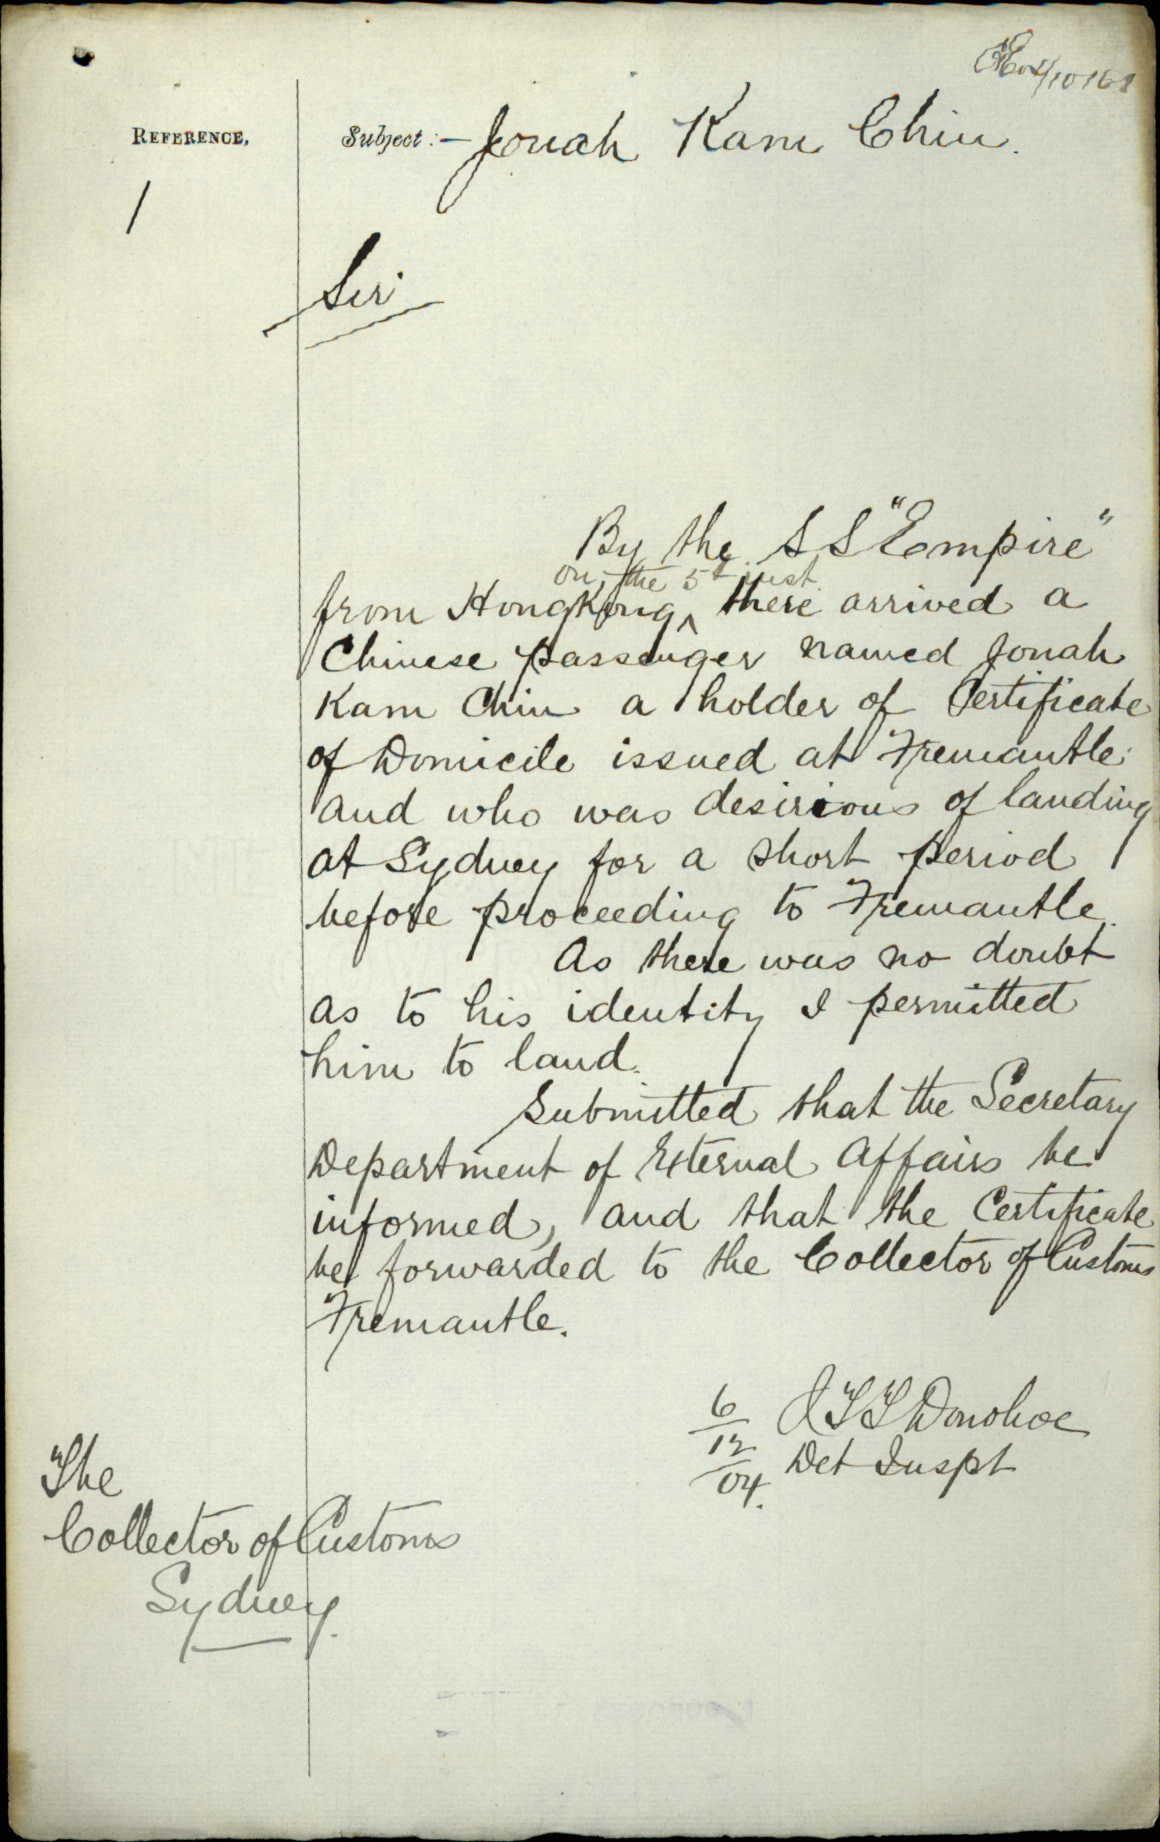 REFERENCE.
1
Subject:— Jonah Kam Chin.
Sir
By the S S "Empire"
on the 5th inst.
from HongKong ^ there arrived a
Chinese passenger named Jonah
Kam Chin a holder of Certificate
of Domicile issued at Fremantle
and who was desirious of landing
at Sydney for a short period
before proceeding to Fremantle.
As there was no doubt
as to his identity I permitted
him to land.
Submitted that the Secretary
Department of External Affairs be
informed, and that the Certificate
be forwarded to the Collector of Customs
Fremantle.
6/12/04. J T T Donohoe
Det Inspt
The
Collector of Customs
Sydney.